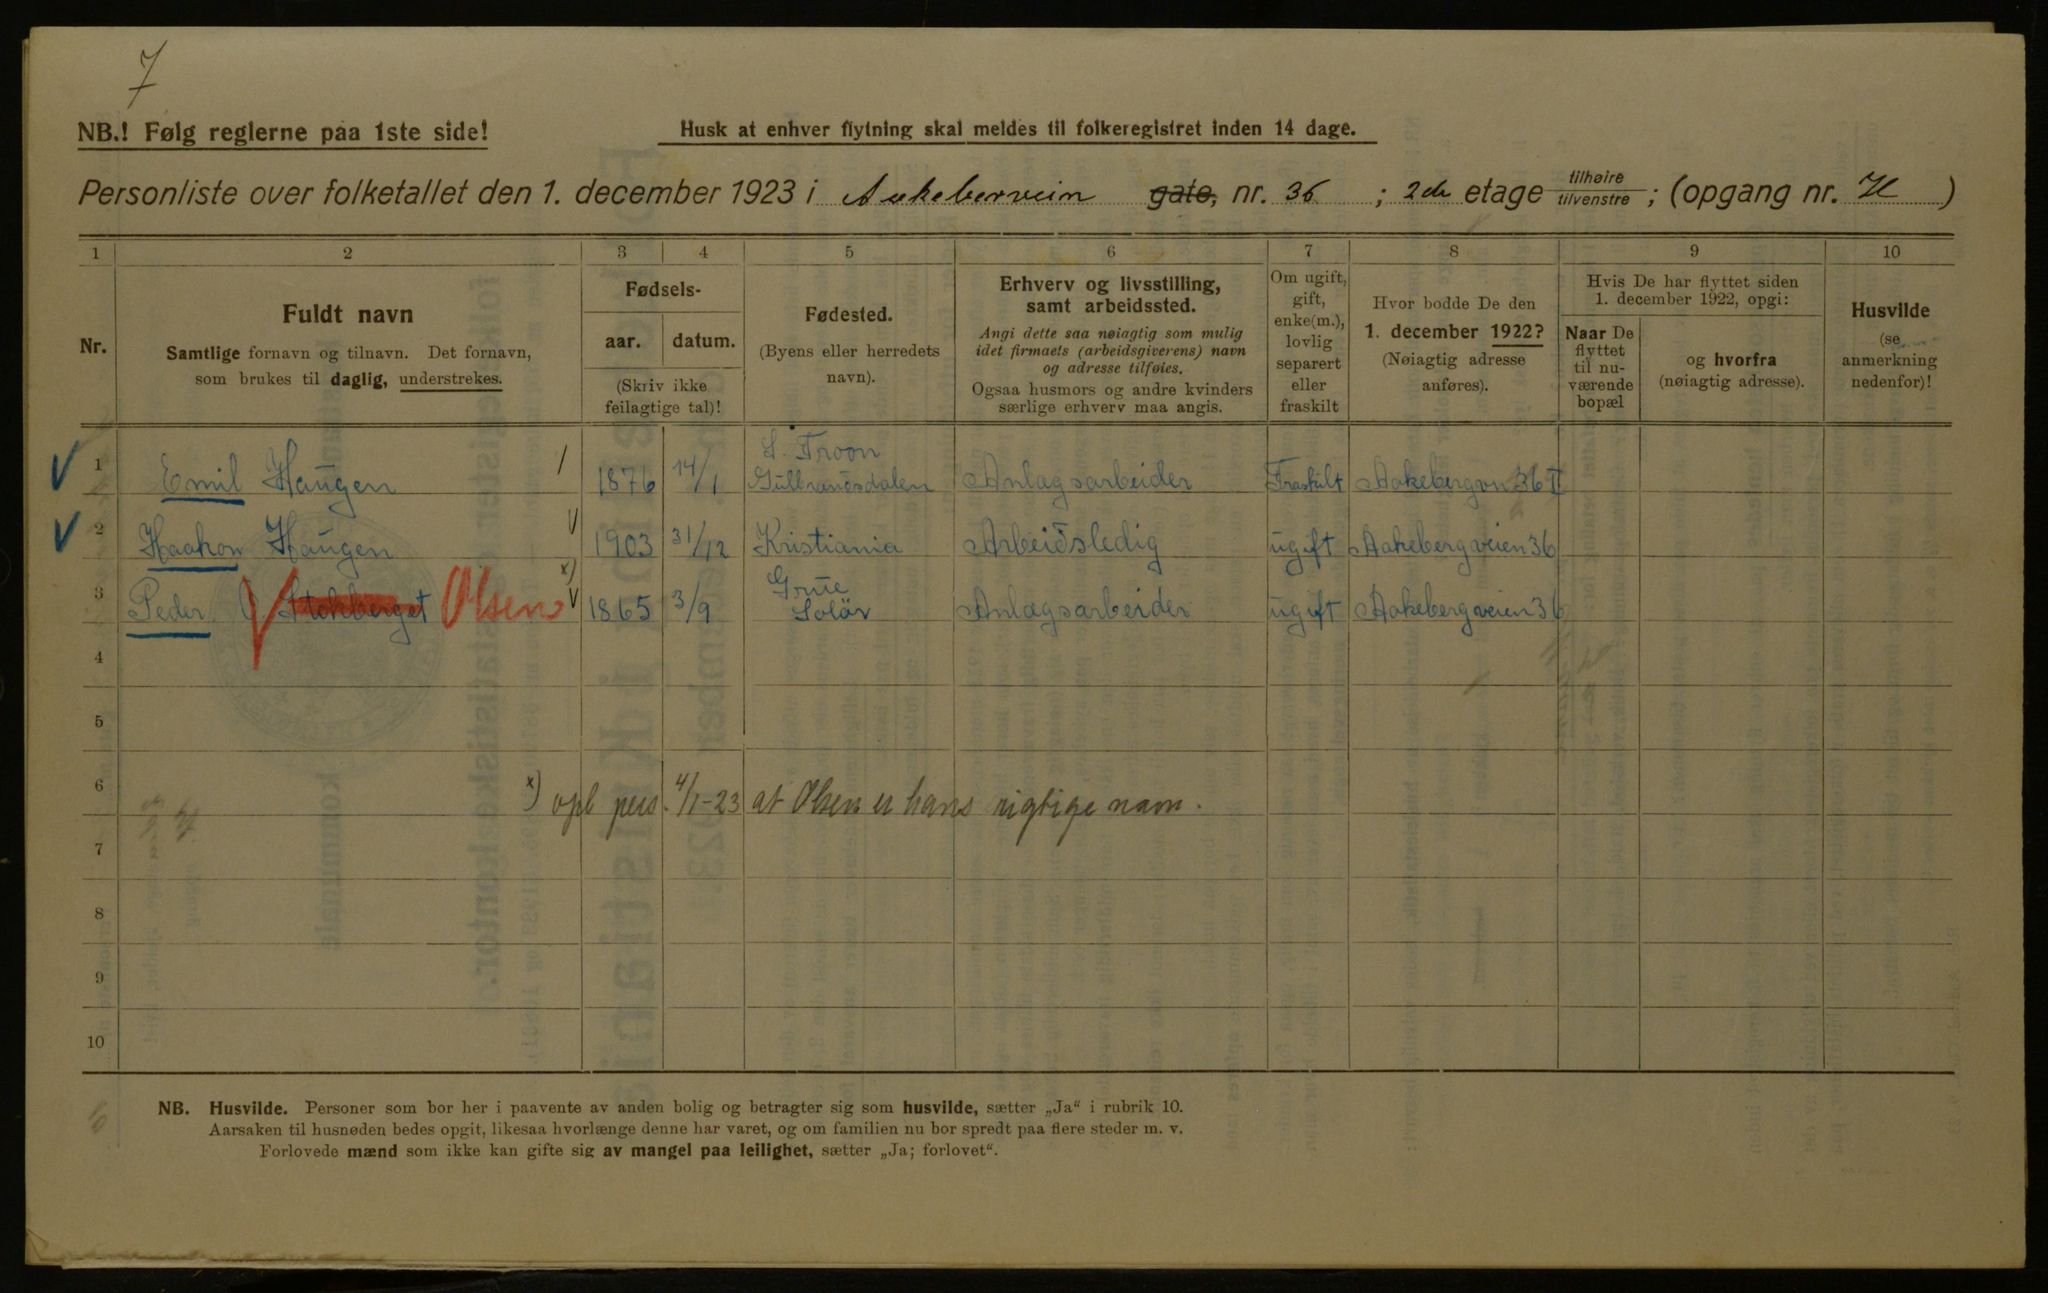 7
NB.! Følg reglerne paa 1ste side!
Husk at enhver flytning skal meldes til folkeregistret inden 14 dage.
Personliste over folketallet den 1. december 1923 i Aakeberveien gate, nr. 36 ; 2den etage tilhøire tilvenstre ; (opgang nr. H )
1 2 3 4 5 6 7 8 9 10
Nr.
Fuldt navn
Samtlige fornavn og tilnavn. Det fornavn,
som brukes til daglig, understrekes.
Fødsels-
aar. datum.
(Skriv ikke
feilagtige tal)!
Fødested.
(Byens eller herredets
navn).
Erhverv og livsstilling,
samt arbeidssted.
Angi dette saa nøiagtig som mulig
idet firmaets (arbeidsgiverens) navn
og adresse tilføies.
Ogsaa husmors og andre kvinders
særlige erhverv maa angis.
Om ugift,
gift,
enke(m.),
lovlig
separert
eller
fraskilt
Hvor bodde De den
1. december 1922?
(Nøiagtig adresse
anføres).
Hvis De har flyttet siden
1. december 1922, opgi:
Naar De
flyttet
til nu-
værende
bopæl
og hvorfra
(nøiagtig adresse).
Husvilde
(se
anmerkning
nedenfor)!
1 Emil Haugen 1876 14/1 S. Froon Gulbrandsdalen Anlægsarbeider Fraskilt Aakebergvn 36 II
2 Haakon Haugen 1903 31/12 Kristiania Arbeidsledig ugift Aakebergveien 36
3 Peder Stokberget Olsen x) 1865 3/9 Grue Solör Anlægsarbeider ugift Aakebergveien 36
4
5
6 x) opl pers. 4/1-23 at Olsen er hans rigtige navn.
7
8
9
10
NB. Husvilde. Personer som bor her i paavente av anden bolig og betragter sig som husvilde, sætter „Ja“ i rubrik 10.
Aarsaken til husnøden bedes opgit, likesaa hvorlænge denne har varet, og om familien nu bor spredt paa flere steder m. v.
Forlovede mænd som ikke kan gifte sig av mangel paa leilighet, sætter „Ja; forlovet“.